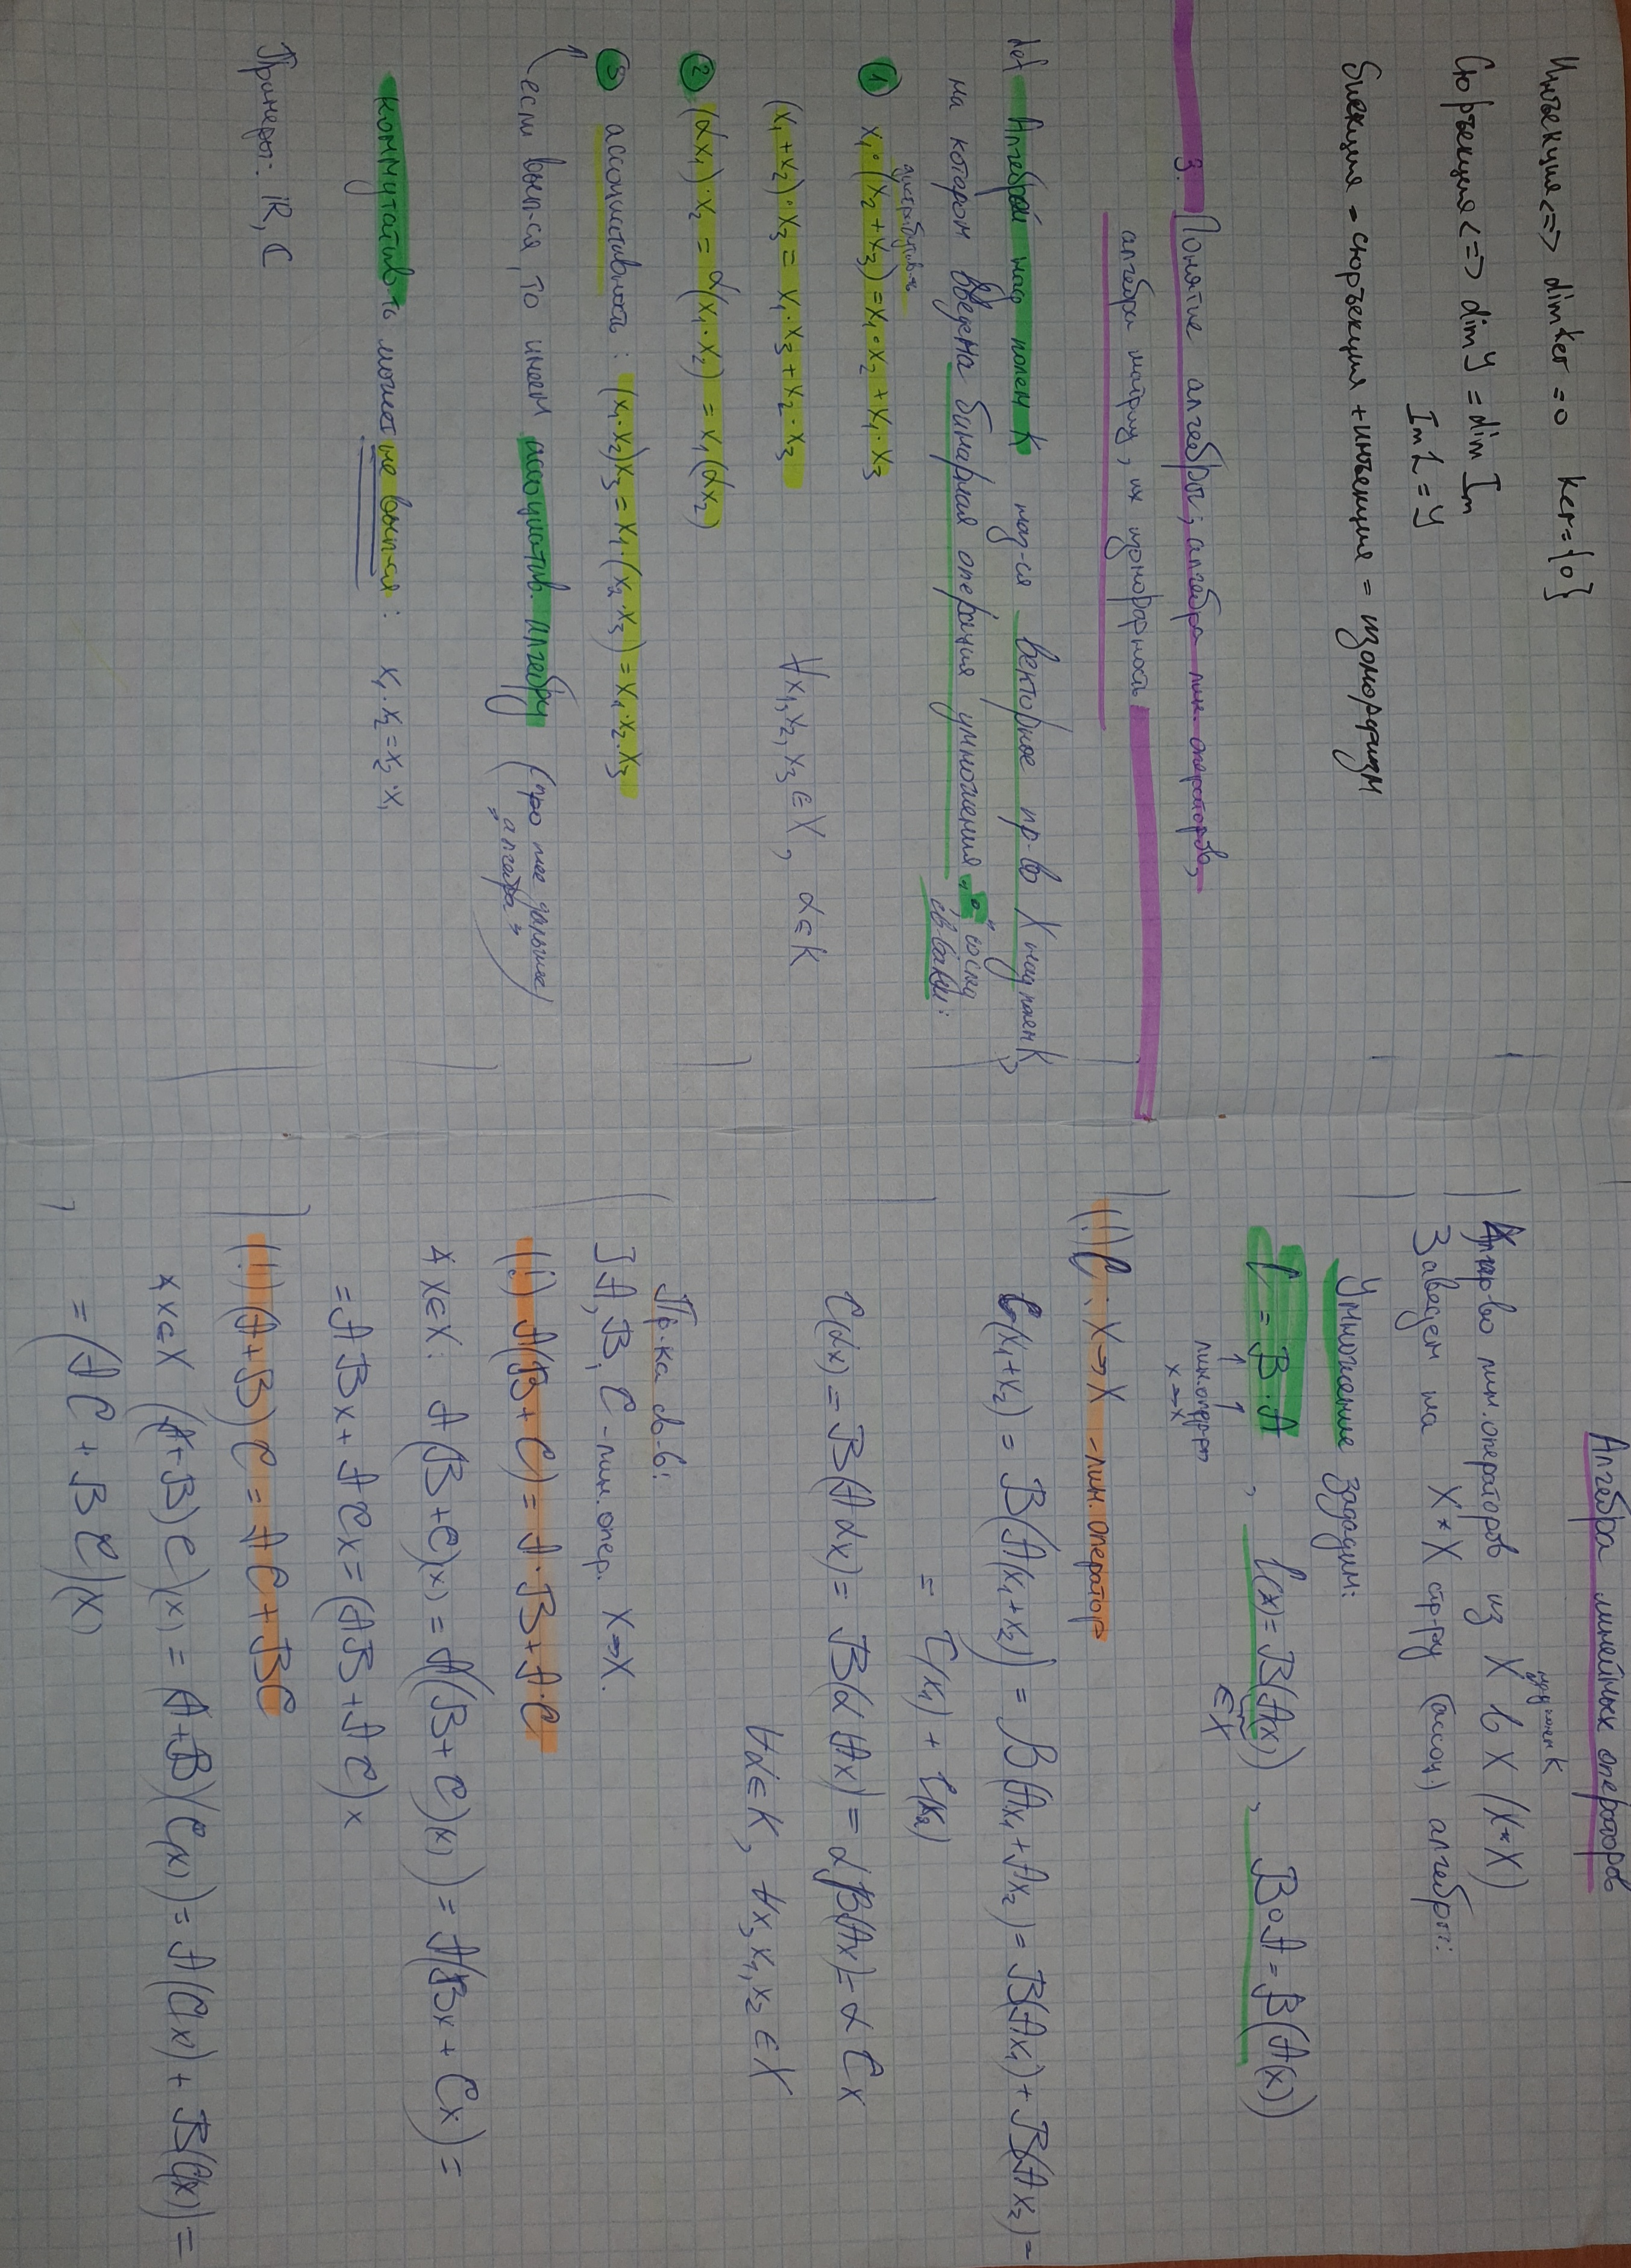 Инъекция <=> dim Ker = 0 Ker = {0}
Сюръекция <=> dim Y = dim Im
Im L = Y
Биекция = сюръекция + инъекция = изоморфизм
3. Понятие алгебры; алгебра лин. операторов,
алгебра матриц, их изоморфность
def Алгеброй над полем K наз-ся векторное пр-во X над полем K,
на котором введена бинарная операция умножения „•“ со след св-вами:
дистрибутив-ть
① x₁•(x₂+x₃) = x₁•x₂ + x₁•x₃
(x₁+x₂)•x₃ = x₁•x₃ + x₂•x₃ ∀x₁,x₂,x₃ ∈ X, α ∈ K
② (αx₁)•x₂ = α(x₁•x₂) = x₁(αx₂)
③ ассоциативность: (x₁•x₂)x₃ = x₁•(x₂•x₃) = x₁•x₂•x₃
если вып-ся, то имеем ассоциатив. алгебру (про нее дальше
„алгебра“)
коммутатив-ть может не вып-ся: x₁•x₂ = x₂•x₁
Примеры: R, C
Алгебра линейных операторов
над полем K
лин. операторов из X в X (X*X)
Заведем на X*X стр-ру (ассоц) алгебры:
Умножение зададим:
C = B•A, C(x) = B(A(x)), B∘A = B(A(x))
лин. опер-ры ∈X
X→X
(!) C: X→X - лин. оператор
C(x₁+x₂) = B(A(x₁+x₂)) = B(Ax₁+Ax₂) = B(Ax₁) + B(Ax₂) =
= C(x₁) + C(x₂)
C(αx) = B(Aαx) = B(α(Ax)) = αB(Ax) = αCx
∀α∈K, ∀x, x₁,x₂ ∈ X
Пр-ка св-в:
] A, B, C - лин. опер. X→X.
(!) A(B+C) = A•B + A•C
∀x∈X: A(B+C)(x) = A((B+C)(x)) = A(Bx + Cx) =
= ABx + ACx = (AB + AC)x
(!) (A+B)C = AC + BC
∀x∈X (A+B)C(x) = (A+B)(C(x)) = A(Cx) + B(Cx) =
= (AC + BC)(x)